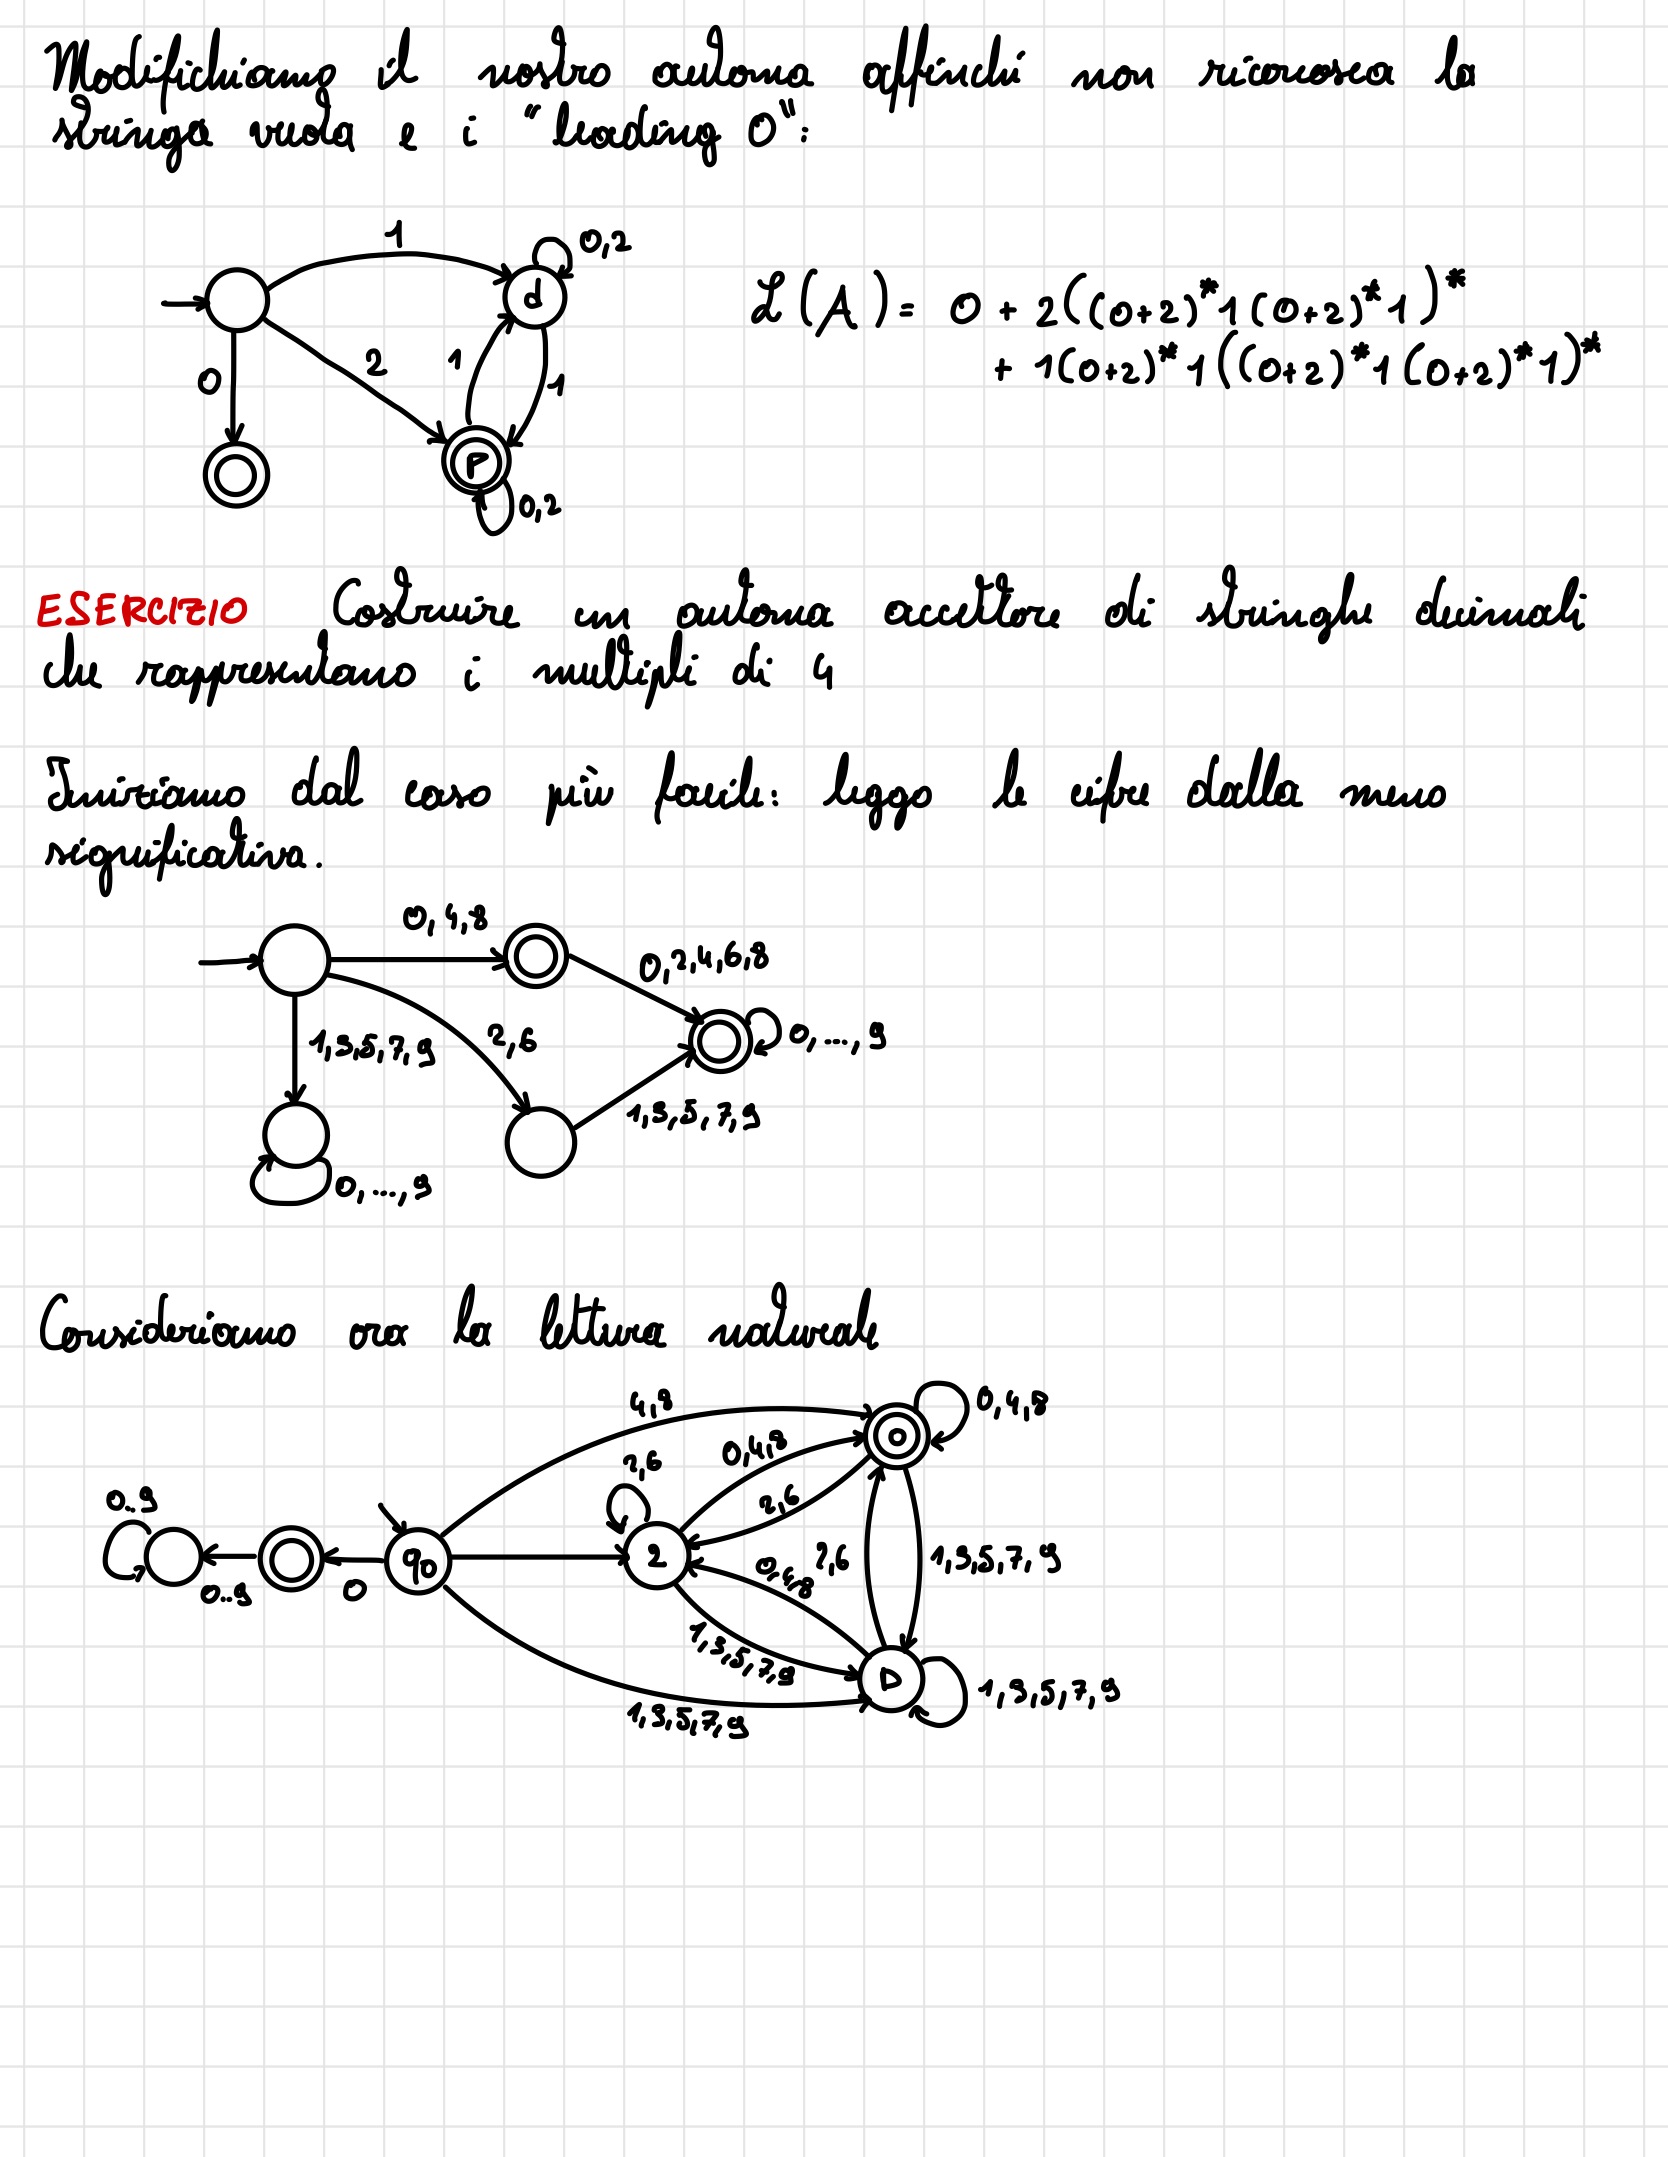 Modifichiamo il nostro automa affinché non riconosca la
stringa vuota e i "leading 0":
1
0,2
d
L(A) = 0 + 2((0+2)*1(0+2)*1)*
+ 1(0+2)*1((0+2)*1(0+2)*1)*
2
1
1
0
P
0,2
ESERCIZIO Costruire un automa accettore di stringhe decimali
che rappresentano i multipli di 4
Iniziamo dal caso più facile: leggo le cifre dalla meno
significativa.
0,4,8
0,2,4,6,8
2,6
0,...,9
1,3,5,7,9
1,3,5,7,9
0,...,9
Consideriamo ora la lettura naturale
4,8
0,4,8
0
0,4,8
2,6
2,6
0..9
q0
2
0,4,8
2,6
1,3,5,7,9
0..9
0
1,3,5,7,9
D
1,3,5,7,9
1,3,5,7,9